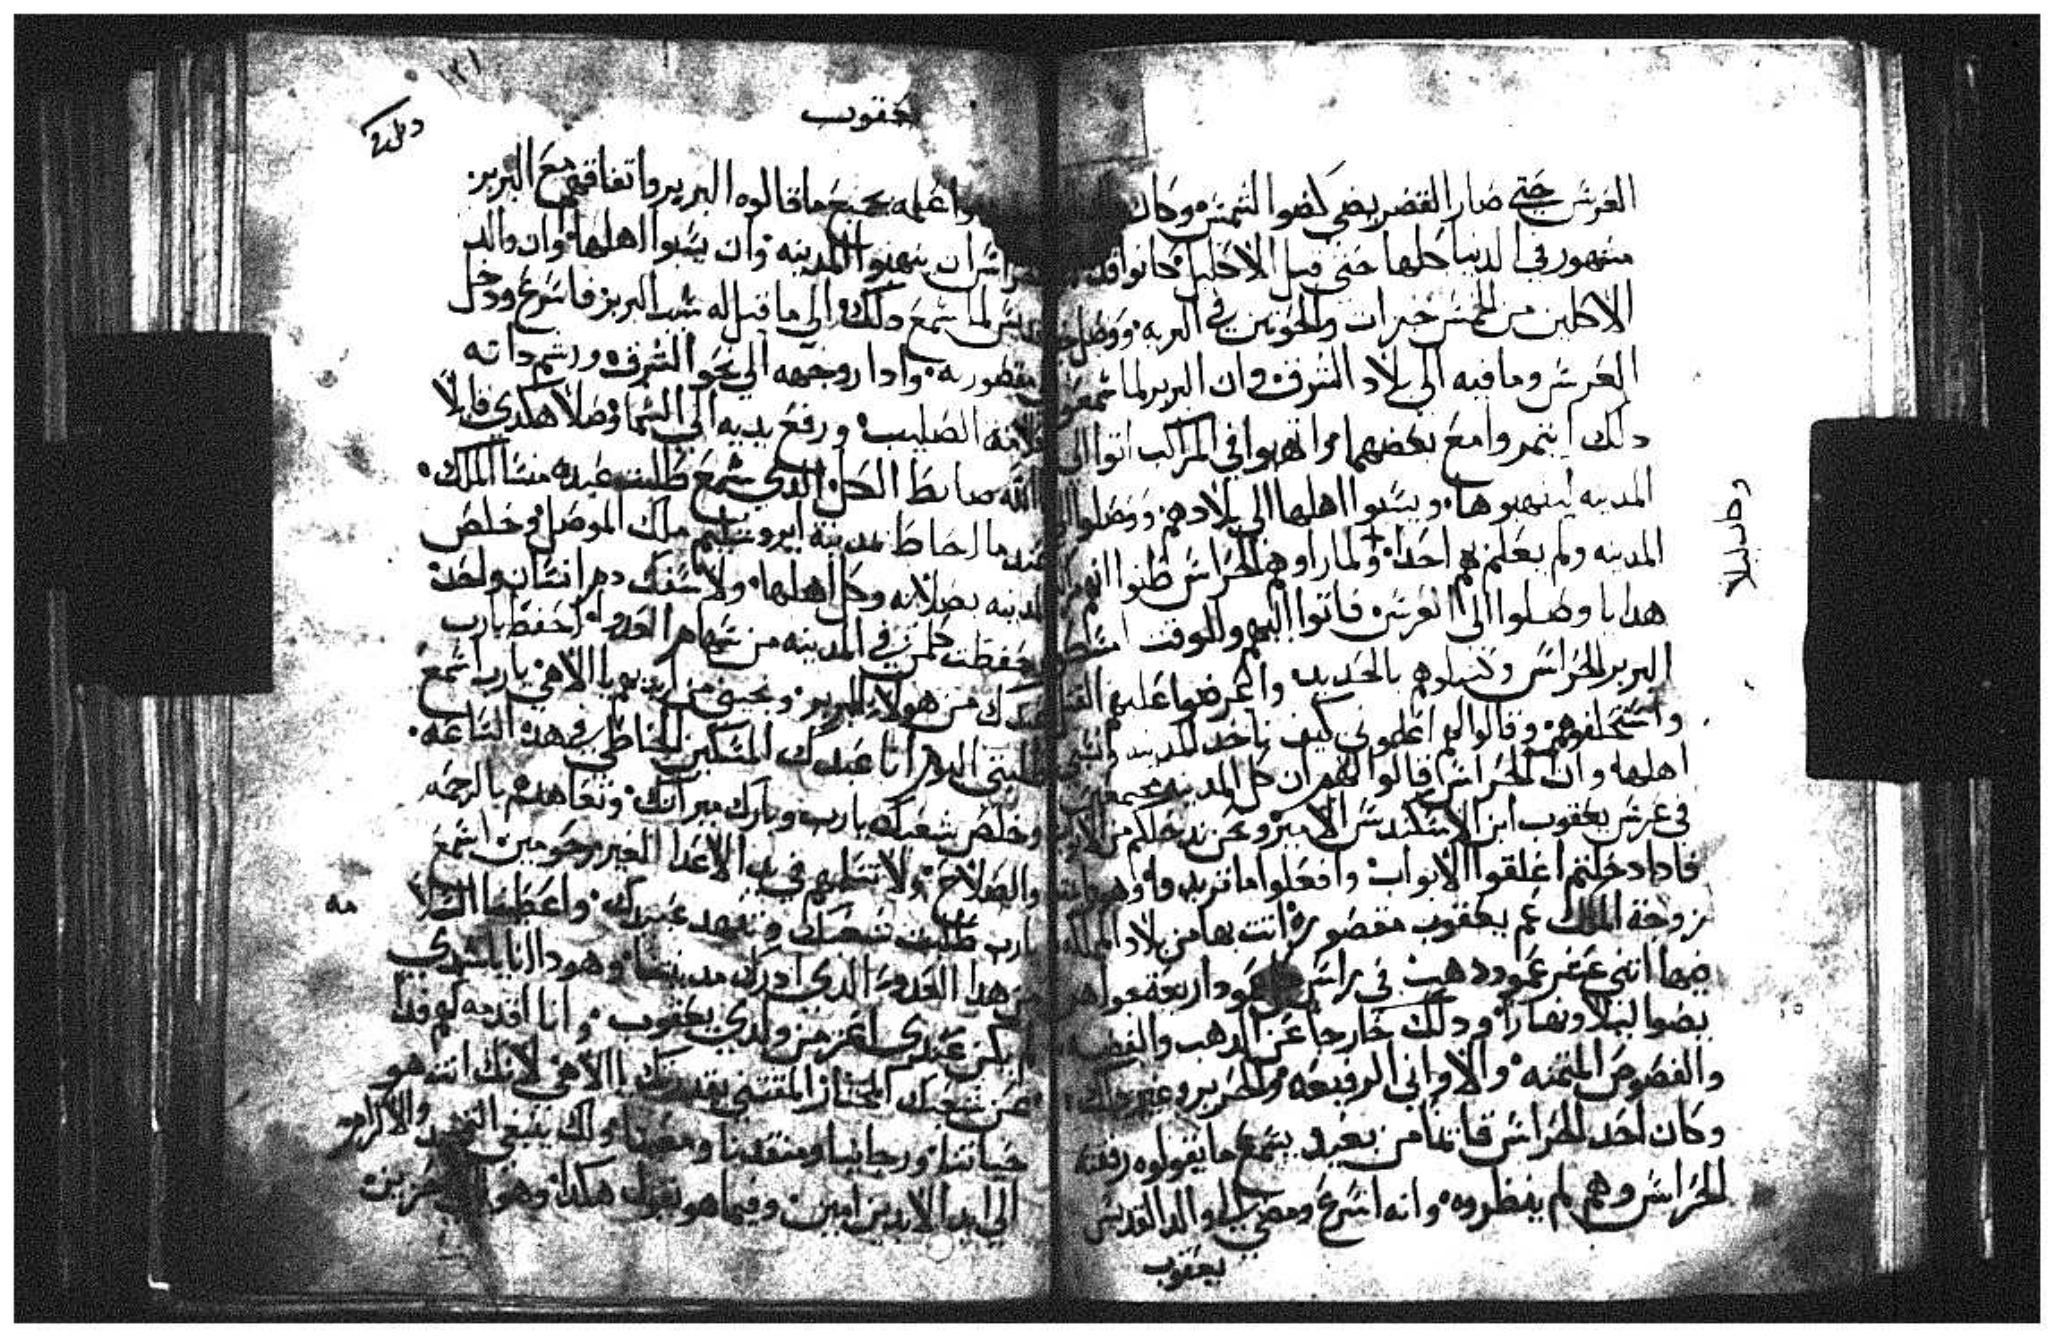 العرس حتى صار القصر يضي كضوا الشمس وكان
مشهور في الدنيا كلها حتى قيل الاكليل كانوا
الاكلين من الخمس خبزات والحوتين في البريه ووصل
العرس وما فيه الى بلاد الشرق وان البربر لما سمعوا
دلك ايتمروا مع بعضهما مرا تهبوا في المراكب اتوا الى
المدينه لينهبوها ويسبوا اهلها الى بلادهم ووصلوا الى
المدينه ولم يعلم بهم احدا ولما راوهم الحراس ظنوا انهم
هدايا وصلوا الى العرس فاتوا اليهم وللوقت
البربر الحراس وكتفوهم بالحديد واعرضوا عليهم القتل
واستحلفوهم وقالوا لهم اعلموني كيف ناخد المدينه ونسبي
اهلها وان الحراس قالوا لهم ان كل المدينه مجتمعين
في عرس يعقوب ابن الاسكندس الامير ونحن ندخلكم من
فادا دخلتم اغلقوا الابواب وافعلوا ما تريدوه
زوجة الملك عم يعقوب مقصوره اتت بها من بلاد
فيها اثني عشر عمود دهب في راس عمود اربعة جواهر
يضوا ليلا ونهارا ودلك خارجا عن الدهب والفضه
والفصوص المتمنه والاواني الرفيعه والحرير وغير دلك
وكان احد الحراس قايما من بعيد يسمع ما يقولوه رفقته
الحراس وهم لم ينظروه وانه اسرع ومضى الى والد القديس
يعقوب
يعقوب
واعلمه بجميع ما قالوه البربر واتفاقهم مع البربر
ان ينهبوا المدينه وان يسبوا اهلها وان والد
لما سمع دلك الى ما قيل له بسبب البربر فاسرع ودخل
مقصورته وادار وجهه الى نحو الشرق ورشم داته
الصليب ورفع يديه الى السما وصلا هكدى قايلا
الله ضابط الكل الدي سمع طلبت عبده منسا الملك
عندما احاط بمدينة ايروشليم ملك الموصل وخلص
المدينه بصلاته وكل اهلها ولا سفك دم انسان واحد
حفظت كلمن في المدينه من سهام العدو احفظ يارب
عبدك من هولاي البربر ونجيني من ايديهم يا الاهي يارب اسمع
طلبتي اليوم انا عبدك المسكين الخاطي في هده الساعه
وخلص شعبك يارب وبارك ميراتك وتعاهدهم بالرحمه
والصلاح ولا تسلمهم في يد الاعدا الغير مرحومين اسمع
يارب طلبت شعبك وتعهد عبيدك واعطينا الخلا
من هدا العدو الدي ادرك مدينتنا وهودا انا يا سيدي
لم يكن عندي اعز من ولدي يعقوب وانا اقدمه لك فدا
عن شعبك المختار المقتني بقدرتك يا الاهي لانك انت هو
حياتنا ورجانا ومنقدنا ومعيننا ولك ينبغي التمجيد والاكرام
الى ابد الابدين امين وفيما هو يقول هكدا وهو باكي حزين